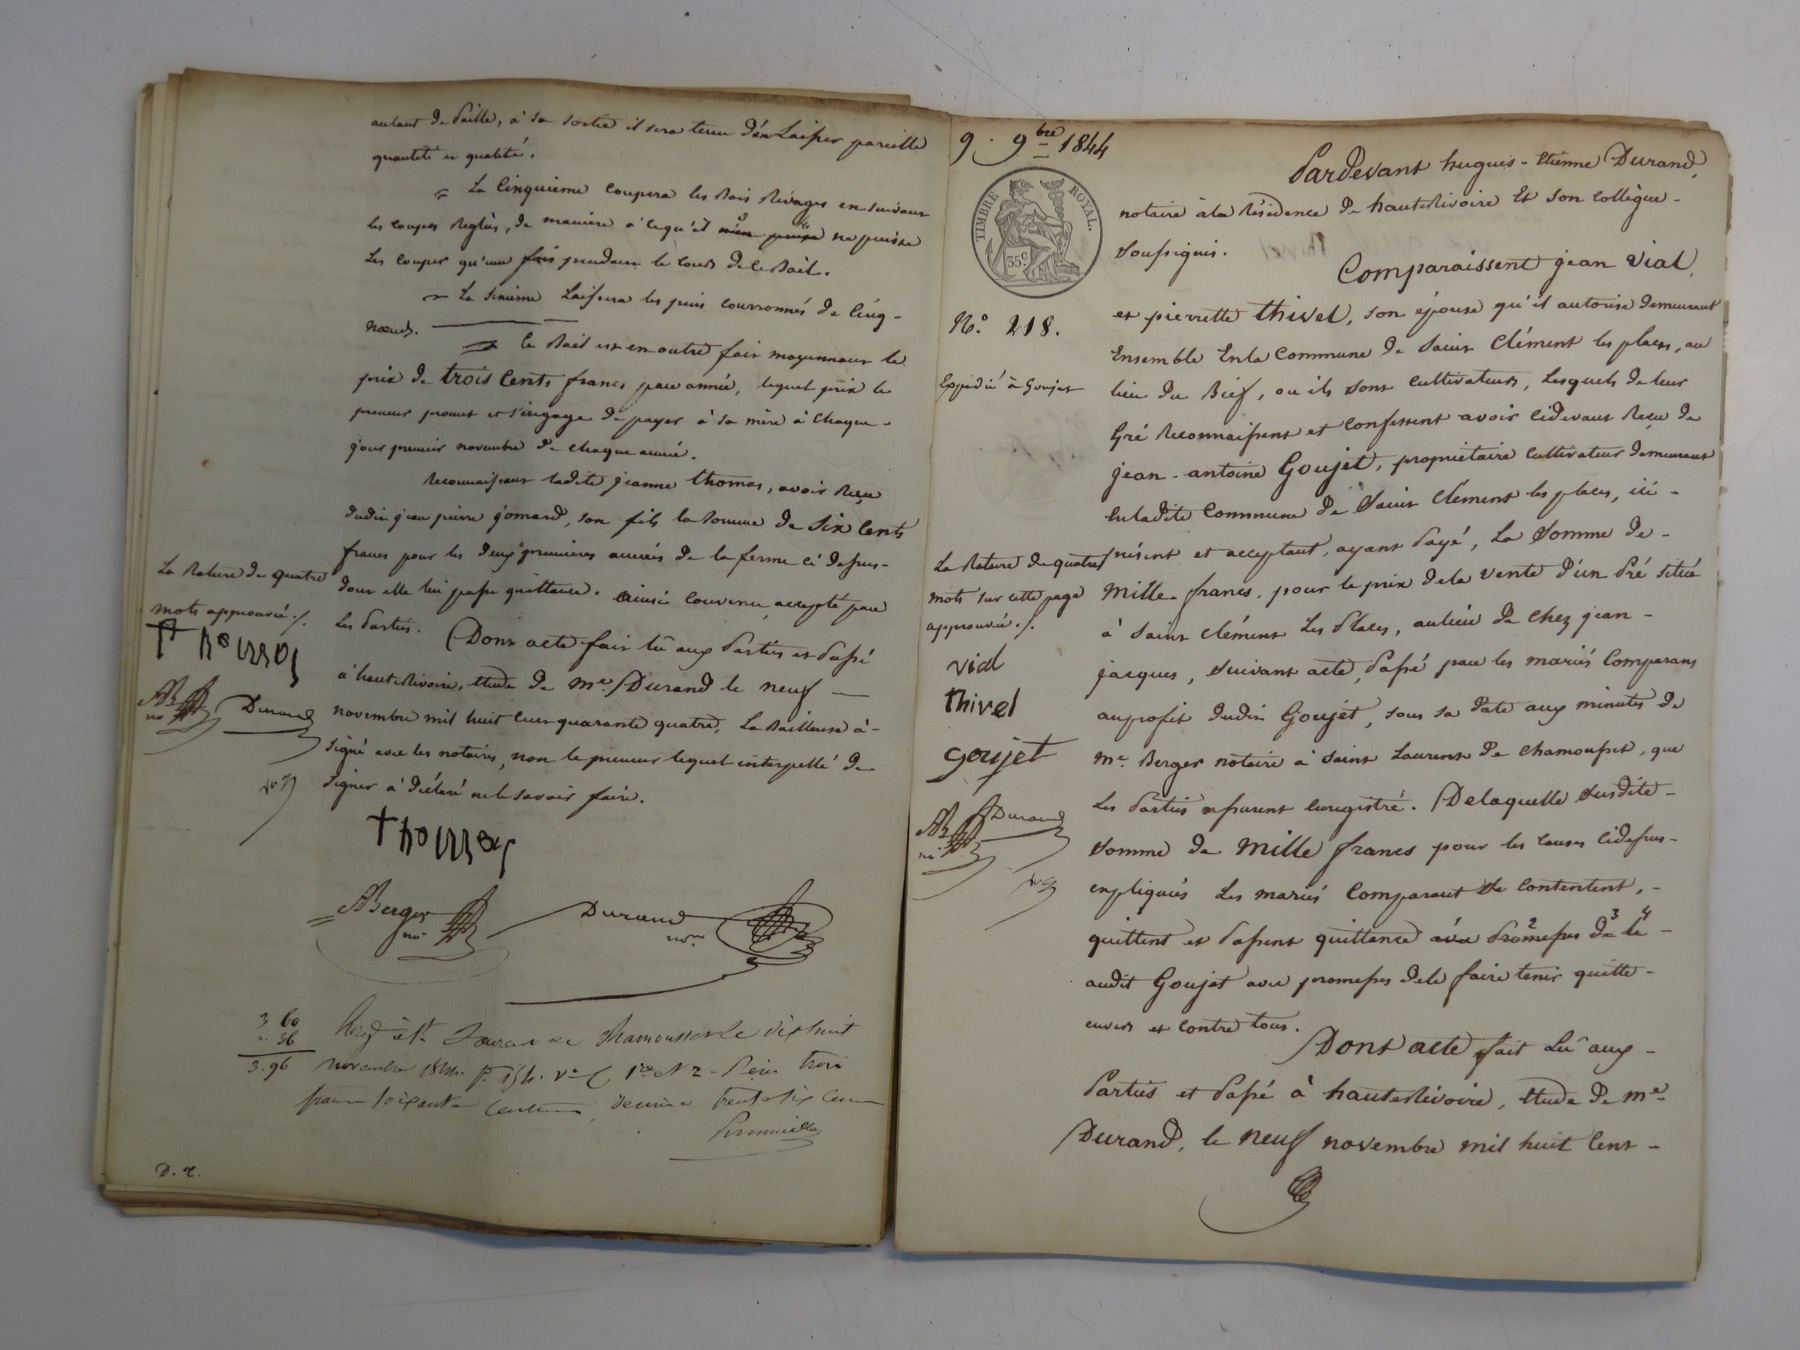 autant de paille, à sa sortie il sera tenu d'en Laisser pareille
quantité et qualité.
= La Cinquieme coupera les Bois Rivages en suivant
les coupes Reglés, de manière à ce qu'il ne puisse
Les couper qu'une fois pendant le cours de ce Bail.
= La Sixieme Laissera les pins courronnés de Cinq -
nœuds.
= Le Bail est en outre fait moyennant le
prix de trois Cents francs par année, lequel prix le
preneur promet et s'engage de payer à sa mère à chaque -
jour premier novembre de chaque année.
Reconnaissant ladite jeanne thomas, avoir Reçu
dudit jean pierre jomard, son fils la somme de Six Cents
francs pour les deux premieres années de la ferme ci dessus -
dont elle lui passe quittance. Ainsi convenu accepté par
Les Parties. Dont acte fait lu aux Parties et Passé
à hauteRivoire, étude de Me. Durand le neuf —
novembre mil huit cent quarante quatre, La Bailleuse à -
signé avec les notaires, non le preneur lequel interpellé de
signer à déclaré ne le savoir faire.
La Rature de quatre
mots approuvé ./.
Thomas
AB
no
Durand
Thomas
ABerger
no
Durand
no.re
3 60
36
3.96
Enregé à St Laurent de Chamousset le dix huit
novembre 1844. f° 154. Vo C. 1re et 2 - Reçu trois
francs soixante centimes, décime trente six cent
D. r.
9. 9bre 1844
TIMBRE ROYAL.
35 c
No. 218.
Expedié à Goujet
Pardevant hugues - Etienne Durand,
notaire à la Résidence de hauteRivoire Et son collègue -
Soussignés.
Comparaissent jean Vial,
et pierrette thivel, son épouse qu'il autorise demeurant
Ensemble En la Commune de Saint Clément les places, au
lieu du Bief, ou ils sont cultivateurs, Lesquels de leur
Gré Reconnaissent et Confessent avoir cidevant Reçu de
jean - antoine Goujet, propriétaire cultivateur demeurant
En ladite Commune de Saint Clément les places, ici -
présent et acceptant, ayant Payé, La Somme de -
Mille francs, pour le prix de la Vente d'un Pré situé
à Saint Clément Les Places, au lieu de chez jean -
jacques, Suivant acte, Passé par les mariés Comparans
au profit dudit Goujet, sous sa date aux minutes de
Me. Berger notaire à Saint Laurent de Chamousset, que
Les Parties assurent Enregistré. De laquelle Susdite -
Somme de Mille francs pour les Causes cidessus -
expliqués Les mariés Comparant Se Contentent, -
quittent et Passent quittance avec 2 Promesses 3 de 4 le -
audit Goujet avec promesses de le faire tenir quitte -
envers et contre tous.
Dont acte fait Lu aux -
Parties et Passé à hauteRivoire, étude de Me.
Durand, le neuf novembre mil huit Cent -
La Rature de quatre
mots sur cette page
approuvée ./.
vial
thivel
goujet
AB
no
Durand